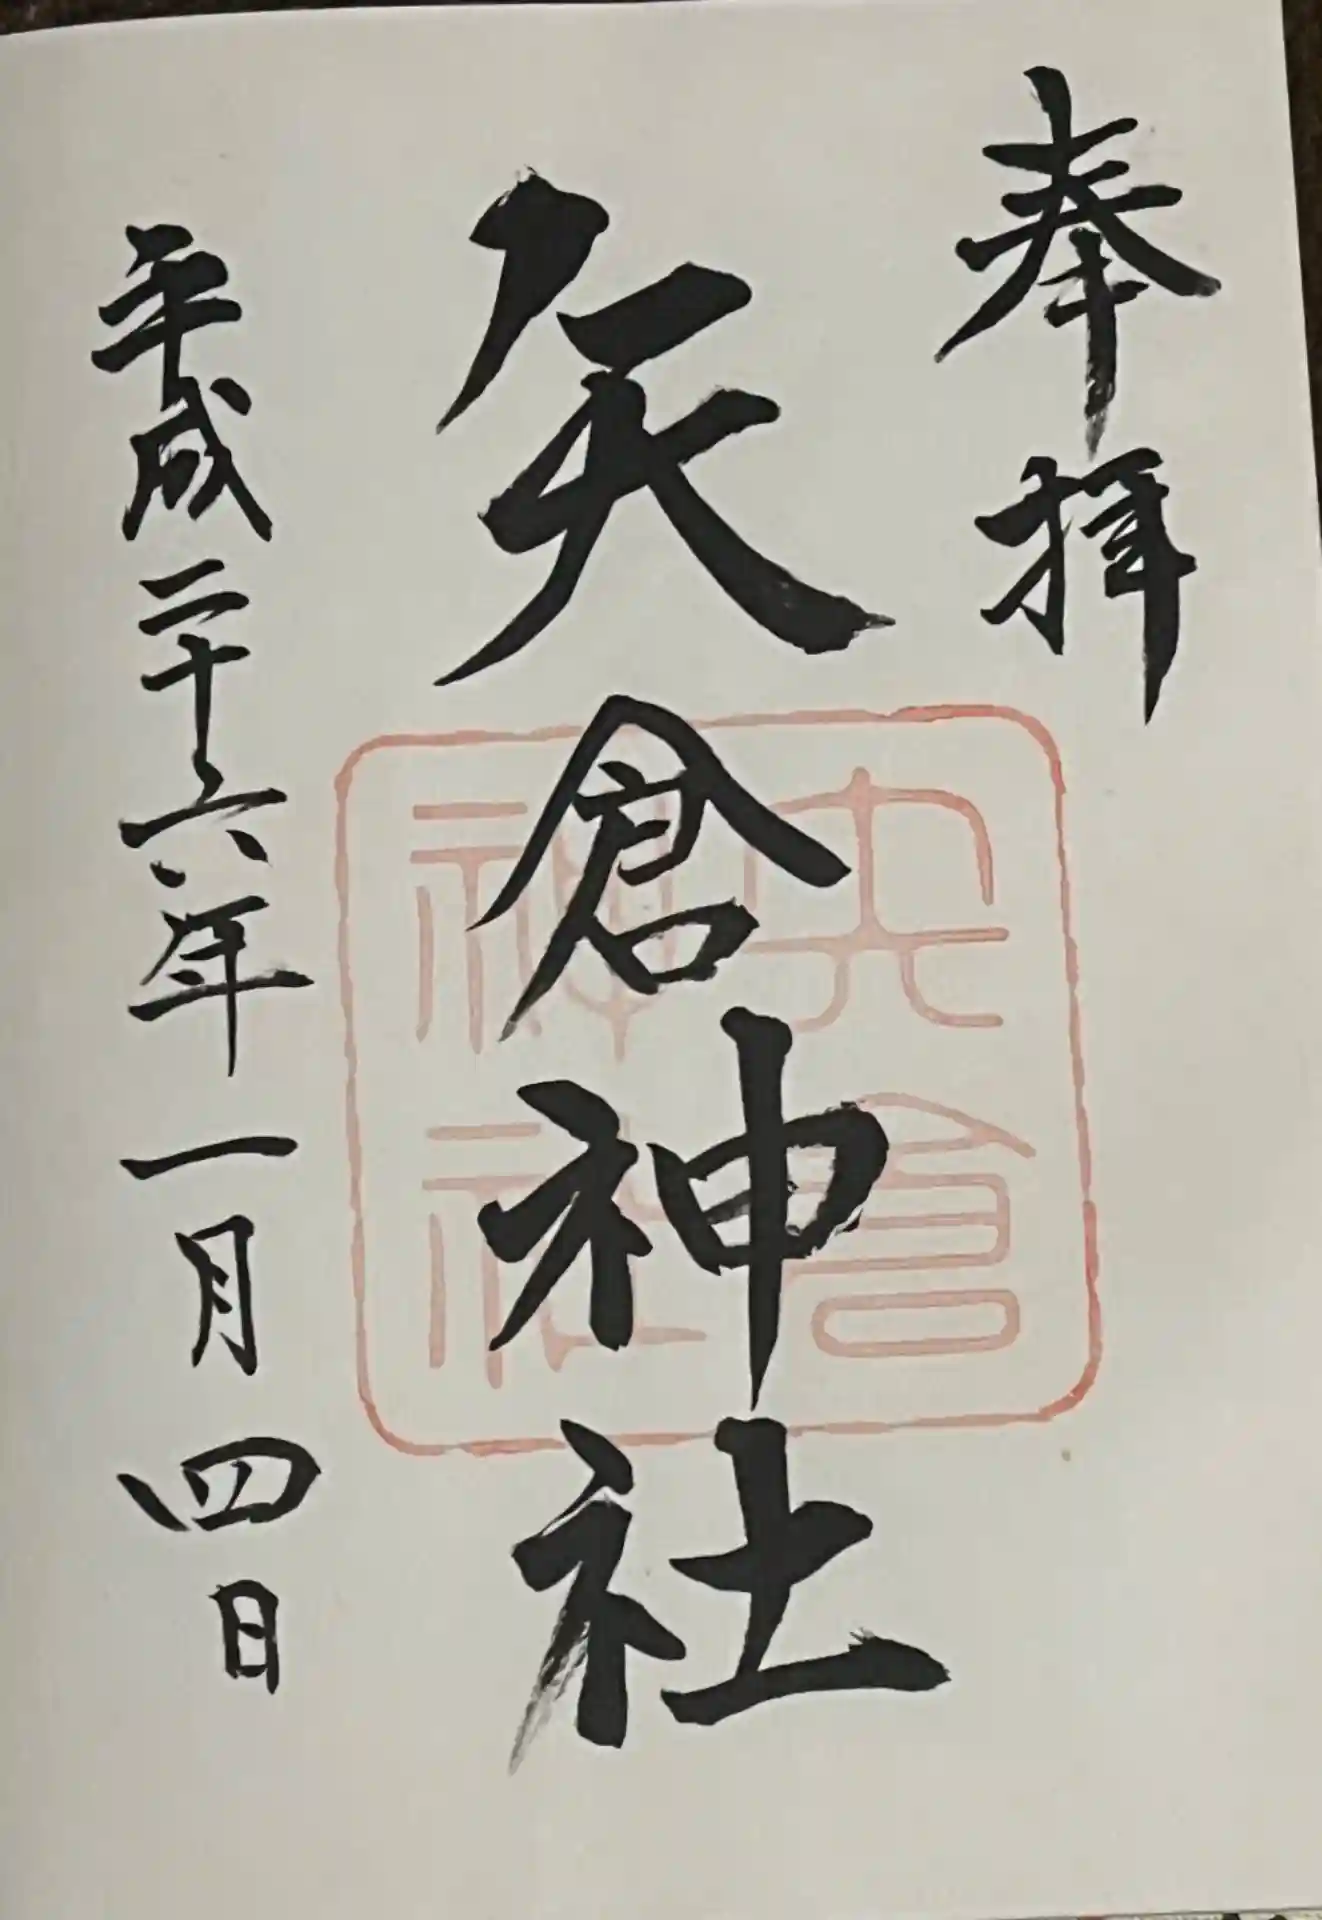 奉拝
矢倉神社
矢倉神社
平成二十六年一月四日